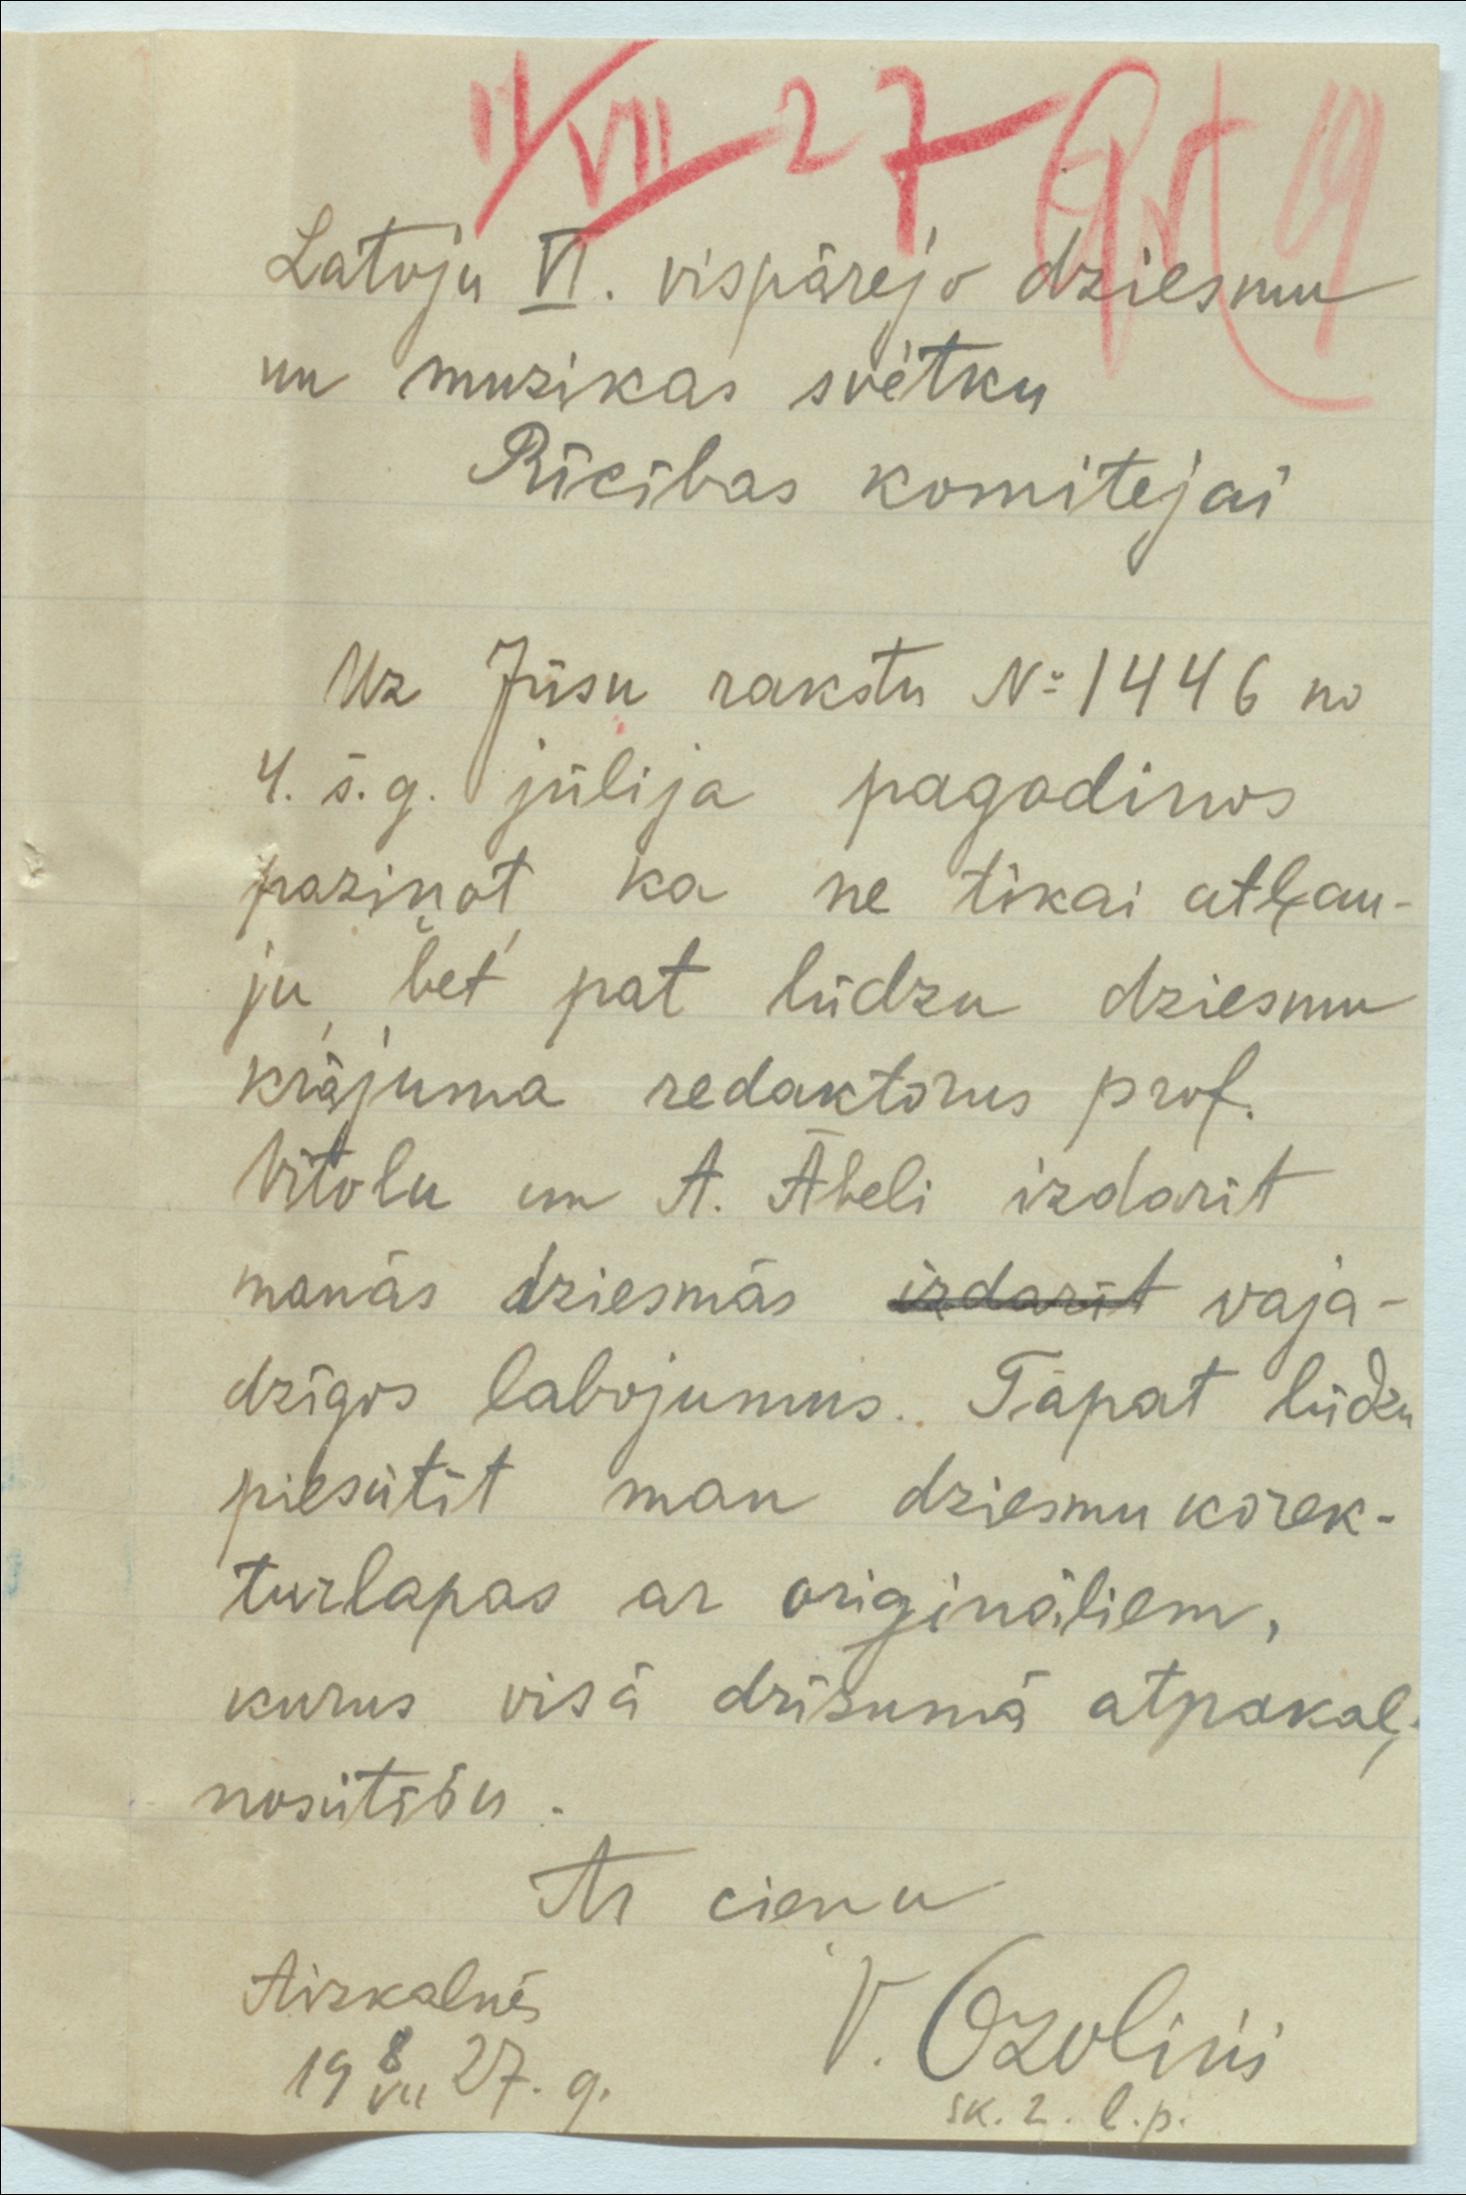 11/VII 27
Latvju VI. vispārejo dziesmu
un muzikas svētku
Rīcības komitejai
Uz Jūsu rakstu № 1446 no
4. š. g. jūlija pagodinos
paziņot, ka ne tikai atļau-
ju, bet pat lūdzu dziesmu
krājuma redaktorus prof.
Vītolu un A. Ābeli izdarīt
manās dziesmās izdarīt vaja-
dzīgos labojumus. Tāpat lūdzu
piesūtīt man dziesmu korek-
turlapas ar originaliem,
kurus visā drīzumā atpakaļ
nosūtīšu.
Ar cieņu
Aizkalnēs
V. Ozoliņš
19 8/VII 27. g.
sk. 2. l.p.